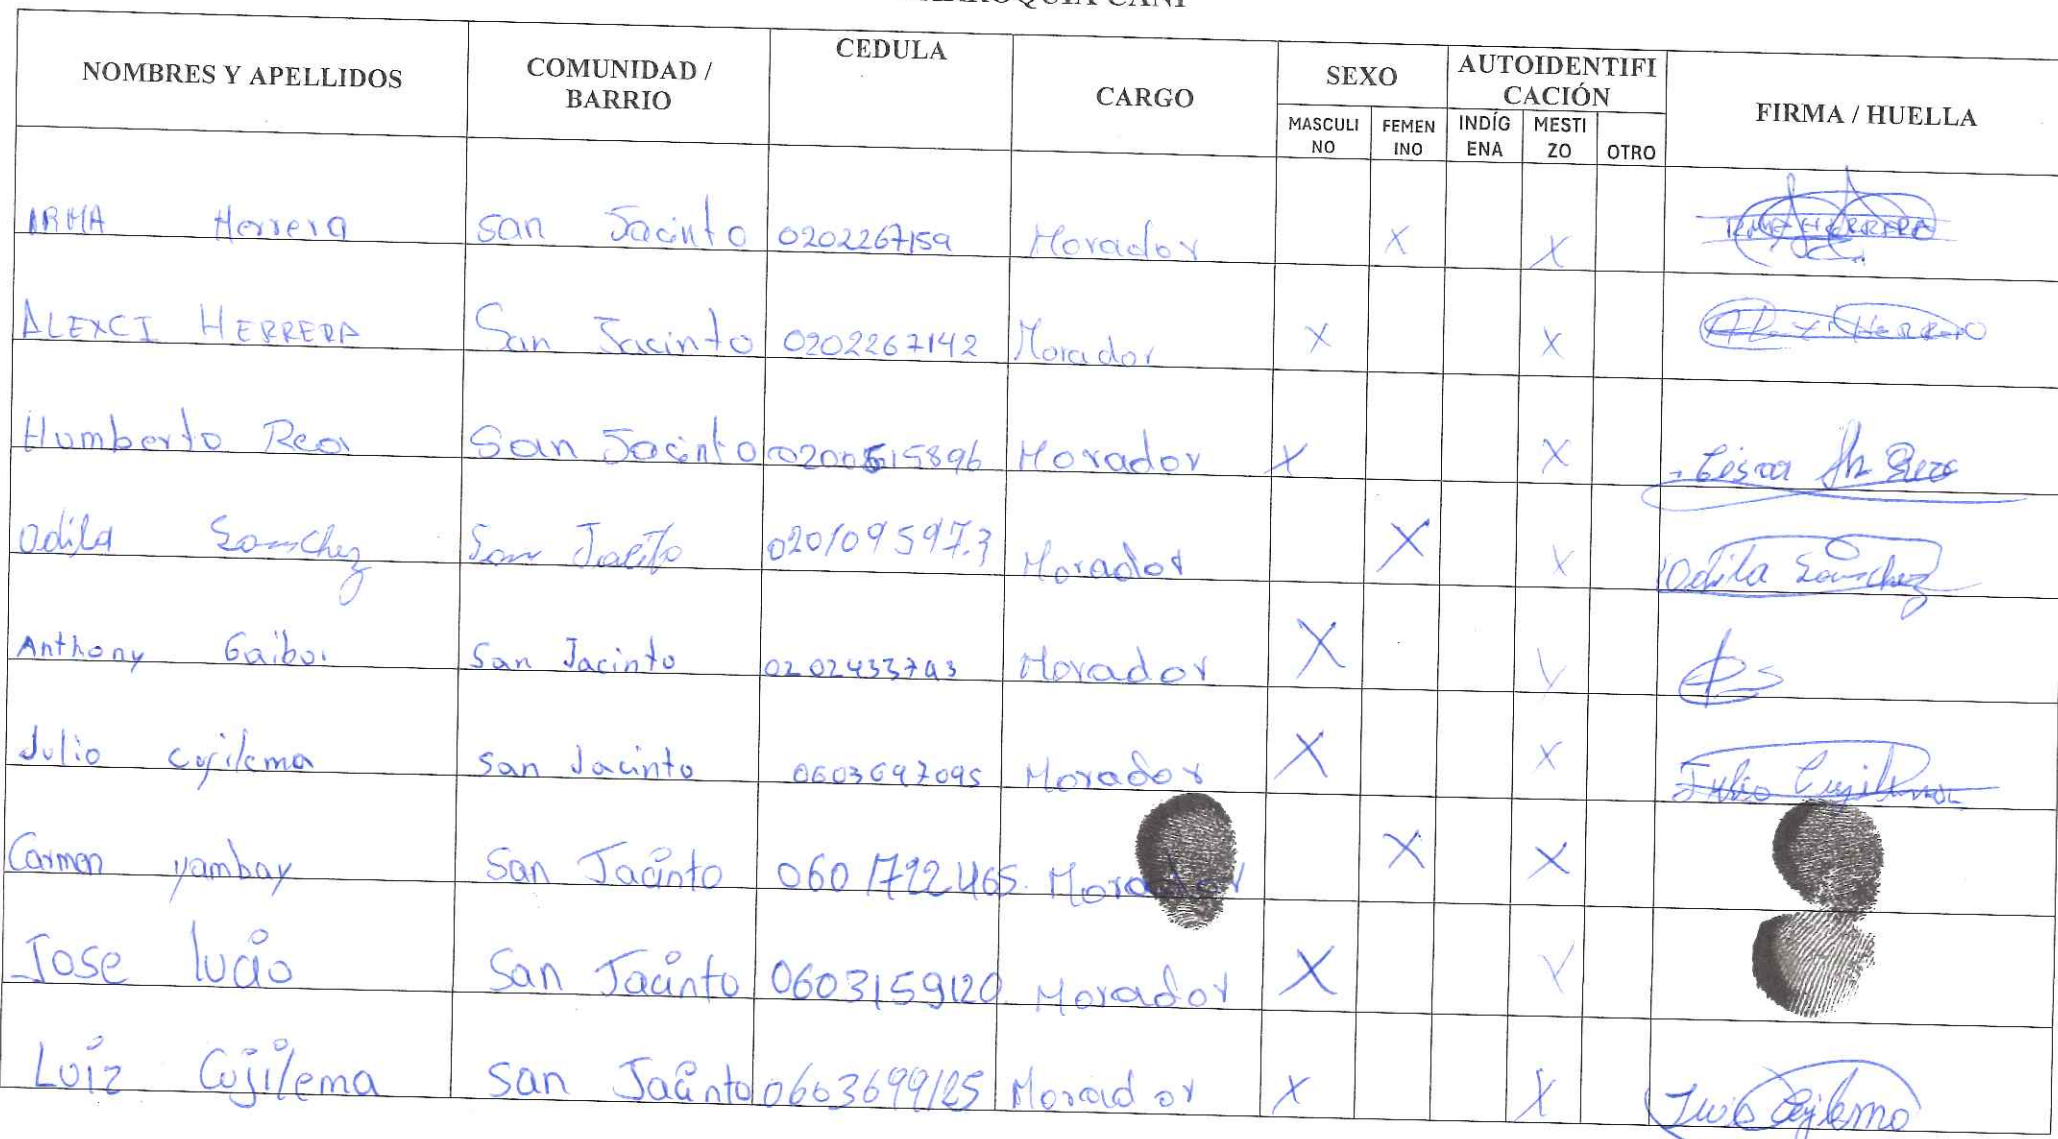 PARROQUIA CANI
NOMBRES Y APELLIDOS COMUNIDAD / BARRIO CEDULA CARGO SEXO AUTOIDENTIFI CACIÓN FIRMA / HUELLA
MASCULI NO FEMEN INO INDÍG ENA MESTI ZO OTRO
IRMA Herrera San Jacinto 0202267159 Morador X X IRMA HERRERA
ALEXCI HERRERA San Jacinto 0202267142 Morador X X Alexi Herrera
Humberto Rea San Jacinto 0200515896 Morador X X César Rea
Odila Sanchez San Jacito 020109597.3 Morador X X Odila Sanchez
Anthony Gaibor San Jacinto 0202433793 Morador X X
Julio Cujilema San Jacinto 0603697095 Morador X X Julio Cujilema
Carmen yambay San Jacinto 0601722465. Morador X X
Jose lucio San Jacinto 0603159120 Morador X X
Luiz Cujilema San Jacinto 0603699125 Morador X X Luis Cujilema